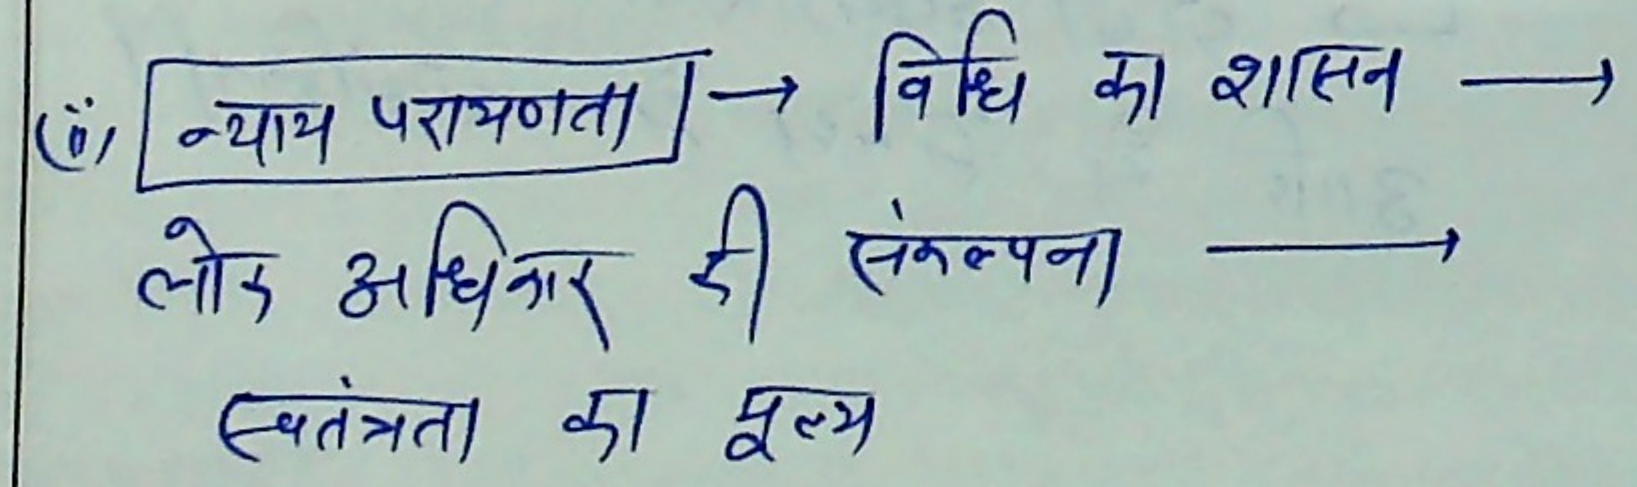 (ii) न्याय परायणता → विधि का शासन →
लोक अधिकार की संकल्पना →
स्वतंत्रता का मूल्य